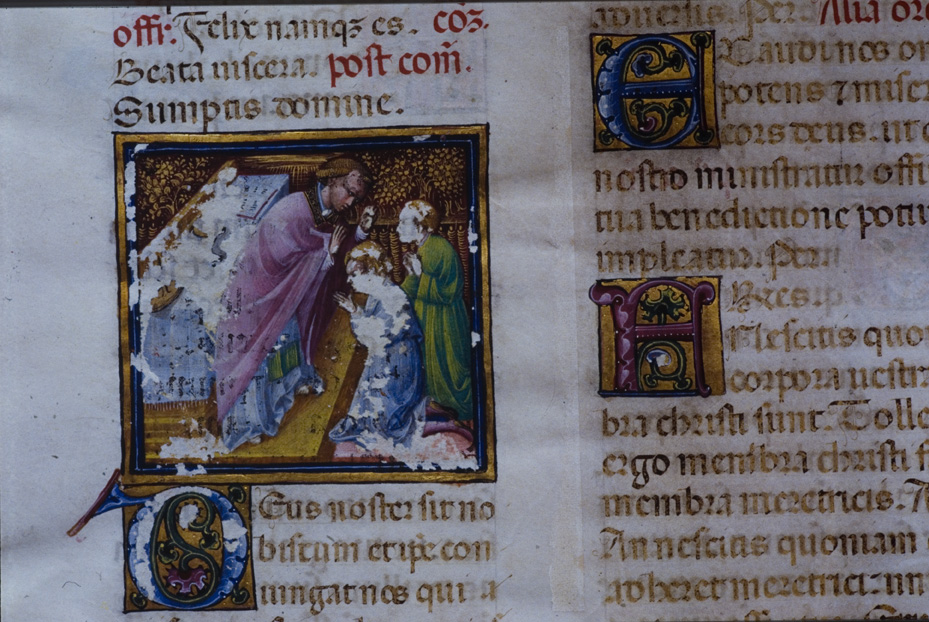 offi: Felix namqꝫ es. coꝫ.
Beata uiscera. post com̄.
Sumptis domine.
Deus noster sit no
biscum et ip̄e con
iungat nos qui
aduersis. Per Alia or
Exaudi nos om
potens ⁊ miser
cors deus. ut
nostro ministratur offi
tua benedictione potiu
impleatur. Per
Fr̄es
Nescitis quo
corpora uestra
bra christi sunt. Tolle
ergo membra christi f
membra meretricis. A
An nescitis quoniam
adheret meretrici: un